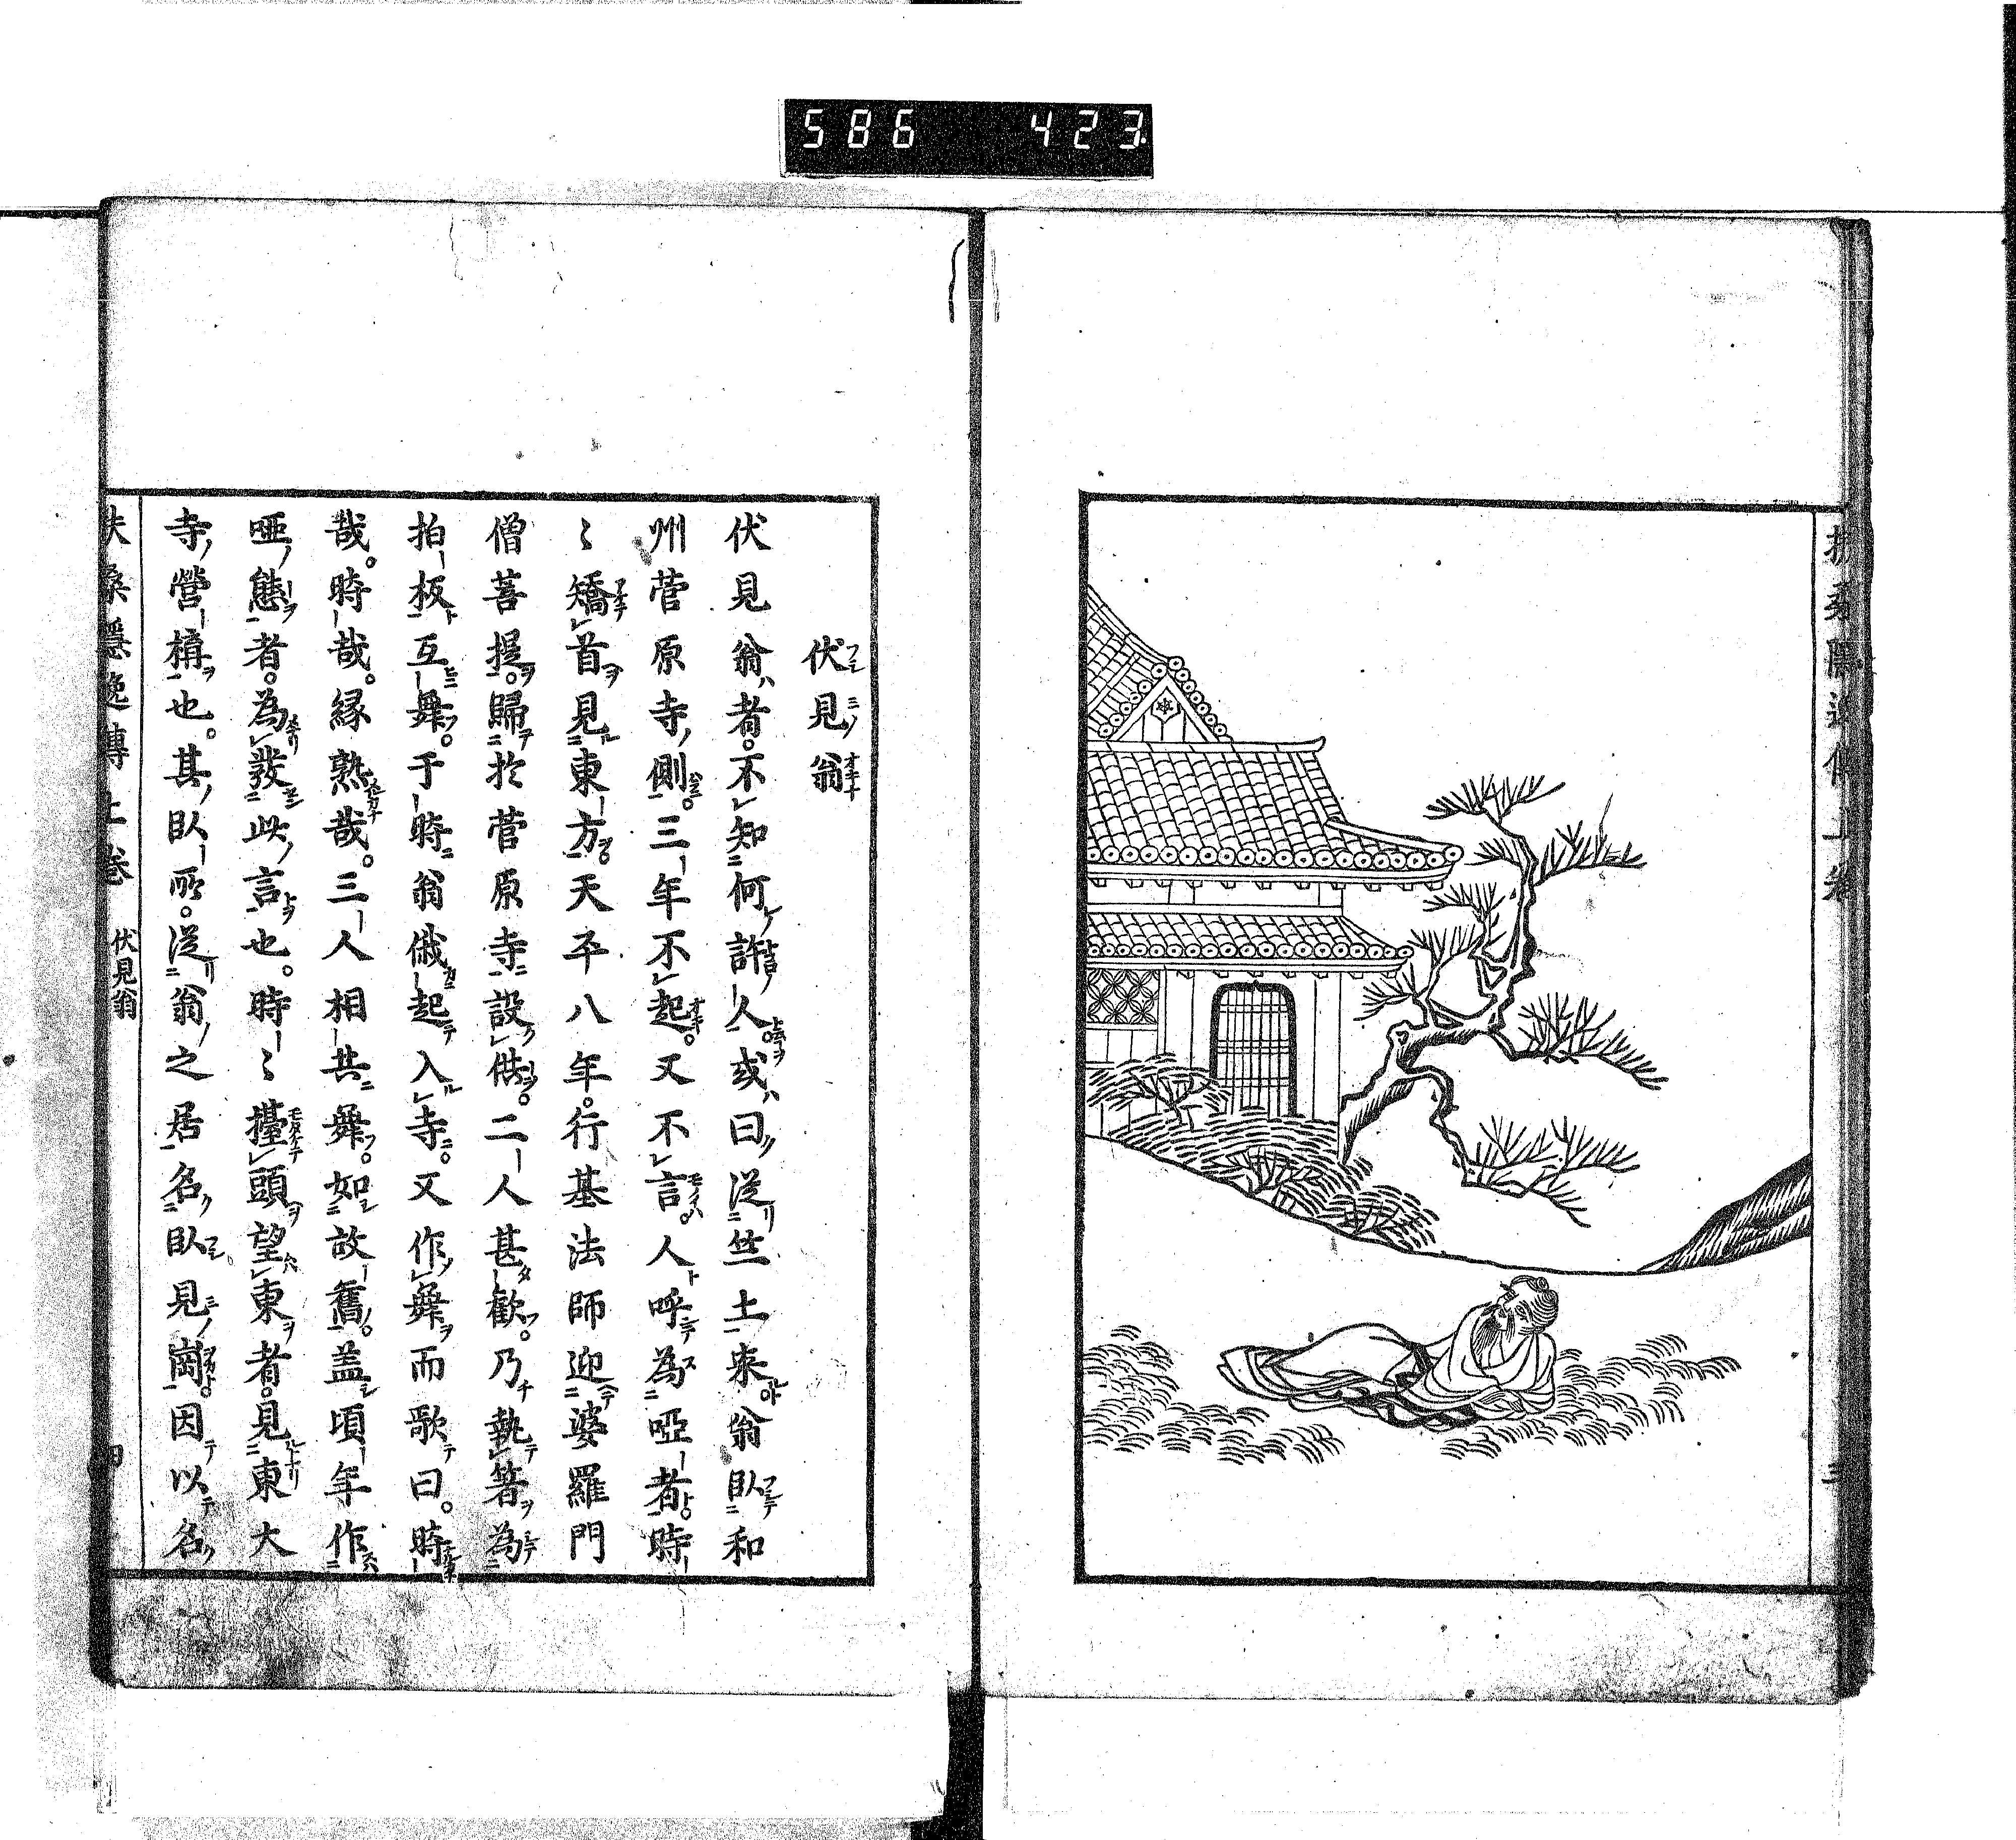 586 423
扶桑隱逸傳上卷
三
伏見翁
伏見翁者。不知何許人。或曰從竺土來。翁臥和
州菅原寺側。三年不起。又不言。人呼為啞者。時
〻矯首見東方。天平八年。行基法師迎婆羅門
僧菩提。歸於菅原寺設供。二人甚歡。乃執箸為
拍板互舞。于時翁俄起入寺。又作舞而歌曰。時
哉。時哉。緣熟哉。三人相共舞。如故舊。盖頃年作
啞態者。為發此言也。時〻擡頭望東者。見東大
寺營構也。其臥所。從翁之居名臥見崗。因以名
扶桑隱逸傳上卷 伏見翁
四